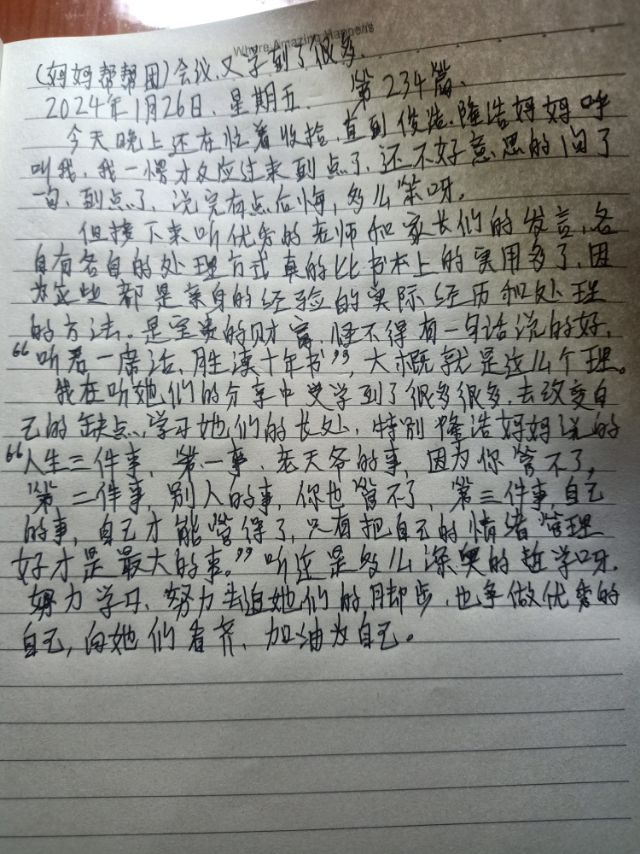 Where Amazing Happens
(妈妈帮帮团)会议,又学到了很多.
2024年1月26日.星期五. 第234篇.
今天晚上还在忙着收拾,直到俊浩.隆浩妈妈呼
叫我,我一愣才反应过来到点了,还不好意思的问了
一句,到点了,说完有点后悔,多么笨呀.
但接下来听优秀的老师和家长们的发言,各
自有各自的处理方式真的比书本上的实用多了,因
为这些都是亲身的经验的实际经历和处理
的方法.是宝贵的财富,怪不得有一句话说的好,
“听君一席话,胜读十年书”,大概就是这么个理。
我在听她们的分享中又学到了很多很多,去改变自
己的缺点,学习她们的长处,特别隆浩妈妈说的
“人生三件事,第一事,老天爷的事,因为你管不了,
第二件事,别人的事,你也管不了,第三件事自己
的事,自己才能管得了,只有把自己的情绪管理
好才是最大的事。”听这是多么深奥的哲学呀.
努力学习,努力去追她们的脚步,也争做优秀的
自己,向她们看齐,加油为自己。